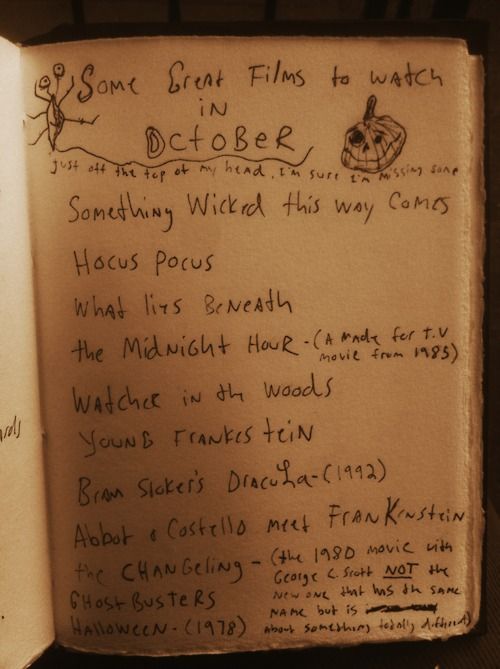 Some Great Films to watch
in
OctobER
just off the top of my head, I'm sure I'm missing some
Something Wicked this way Comes
Hocus Pocus
What lies Beneath
the MIDNIGHT HOUR - (A made for T.V
movie from 1985)
Watcher in the woods
Young Frankestein
Bram Stoker's Dracula - (1992)
Abbot & Costello meet FranKenstein
the CHANGELING - (the 1980 movie with
George C. Scott NOT the
new one that has the same
name but is
about something totally different)
GHOSTBUSTERS
Halloween - (1978)